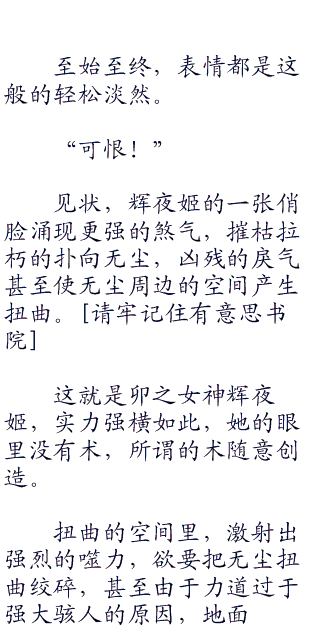 至始至终，表情都是这
般的轻松淡然。
“可恨！”
见状，辉夜姬的一张俏
脸涌现更强的煞气，摧枯拉
朽的扑向无尘，凶残的戾气
甚至使无尘周边的空间产生
扭曲。[请牢记住有意思书
院]
这就是卯之女神辉夜
姬，实力强横如此，她的眼
里没有术，所谓的术随意创
造。
扭曲的空间里，激射出
强烈的噬力，欲要把无尘扭
曲绞碎，甚至由于力道过于
强大骇人的原因，地面